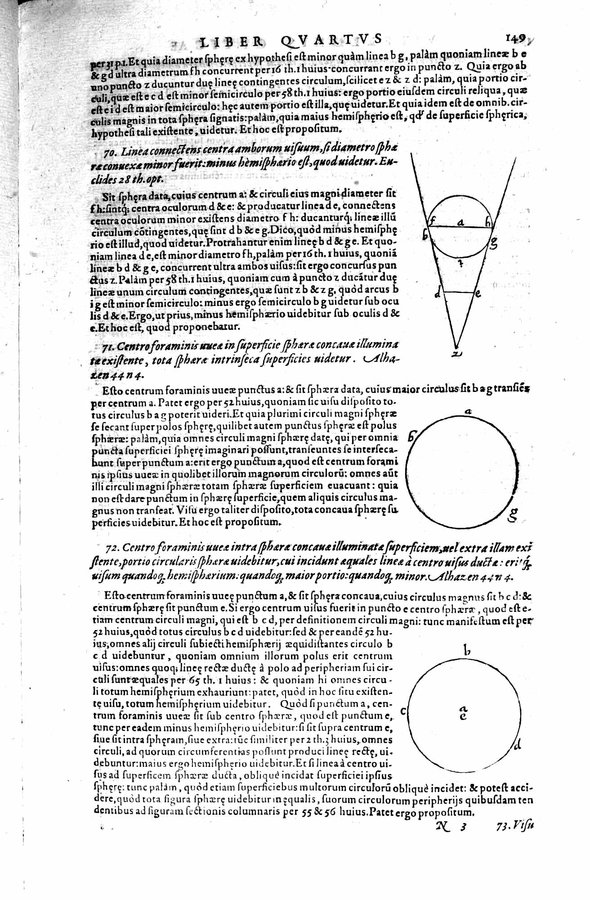 LIBER QVARTVS 149
per 31 p1. Et quia diameter sphęrę ex hypothesi est minor quàm linea b g, palàm quoniam lineæ b e
& g d ultra diametrum f h concurrent per 16 th. 1 huius · concurrant ergo in puncto z. Quia ergo ab
uno puncto z ducuntur duę lineę contingentes circulum, scilicet e z & z d: palàm, quia portio cir-
culi, quæ est e c d est minor semicirculo per 58 th. 1 huius: ergo portio eiusdem circuli reliqua, quæ
est e i d est maior semicirculo: hęc autem portio est illa, quę uidetur. Et quia idem est de omnib. cir-
culis magnis in tota sphęra signatis: palàm, quia maius hemisphęrio est, qd' de superficie sphęrica,
hypothesi tali existente, uidetur. Et hoc est propositum.
70. Linea connectens centra amborum uisuum, si diametro sphæ
ræ conuexæ minor fuerit: minus hemisphærio est, quod uidetur. Eu-
clides 28 th. opt.
Sit sphęra data, cuius centrum a: & circuli eius magni diameter sit
f h: sintq́; centra oculorum d & e: & producatur linea d e, connectens
centra oculorum minor existens diametro f h: ducanturq́; lineæ illũ
circulum cõtingentes, quę sint d b & e g. Dico, quòd minus hemisphę
rio est illud, quod uidetur. Protrahantur enim lineę b d & g e. Et quo-
niam linea d e, est minor diametro f h, palàm per 16 th. 1 huius, quoniã
lineæ b d & g e, concurrent ultra ambos uisus: sit ergo concursus pun
ctus z. Palàm per 58 th. 1 huius, quoniam cum à puncto z ducãtur duę
lineæ unum circulum contingentes, quæ sunt z b & z g, quòd arcus b
i g est minor semicirculo: minus ergo semicirculo b g uidetur sub ocu
lis d & e. Ergo, ut prius, minus hemisphærio uidebitur sub oculis d &
e. Et hoc est, quod proponebatur.
f a h
b g
t
d e
z
71. Centro foraminis uueæ in superficie sphæræ concauæ illumina
tæ existente, tota sphæræ intrinseca superficies uidetur. Alha-
zen 44 n 4.
Esto centrum foraminis uueæ punctus a: & sit sphæra data, cuius maior circulus sit b a g transiẽs
per centrum a. Patet ergo per 52 huius, quoniam sic uisu disposito to-
tus circulus b a g poterit uideri. Et quia plurimi circuli magni sphęrę
se secant super polos sphęrę, quilibet autem punctus sphęræ est polus
sphæræ: palàm, quia omnes circuli magni sphæræ datę, qui per omnia
puncta superficiei sphęrę imaginari possunt, transeuntes se interseca-
bunt super punctum a: erit ergo punctum a, quod est centrum forami
nis ipsius uueæ in quolibet illorum magnorum circulorũ: omnes aũt
illi circuli magni sphæræ totam sphæræ superficiem euacuant: quia
non est dare punctum in sphęrę superficie, quem aliquis circulus ma-
gnus non transeat. Visu ergo taliter disposito, tota concaua sphęrę su
perficies uidebitur. Et hoc est propositum.
a
b
g
72. Centro foraminis uueæ intra sphæræ concauæ illuminatæ superficiem, uel extra illam exi
stente, portio circularis sphæræ uidebitur, cui incidunt æquales lineæ à centro uisus ductæ: eritq́;
uisum quandoq́; hemisphærium: quandoq́; maior portio: quandoq́; minor. Alhazen 44 n 4.
Esto centrum foraminis uueę punctum a, & sit sphęra concaua, cuius circulus magnus sit b c d: &
centrum sphærę sit punctum e. Si ergo centrum uisus fuerit in puncto e centro sphæræ, quod est e-
tiam centrum circuli magni, qui est b c d, per definitionem circuli magni: tunc manifestum est per
52 huius, quòd totus circulus b c d uidebitur: sed & per eandẽ 52 hu-
ius, omnes alij circuli subiecti hemisphærij æquidistantes circulo b
c d uidebuntur, quoniam omnium illorum polus erit centrum
uisus: omnes quoq; lineę rectæ ductę à polo ad peripheriam sui cir-
culi sunt æquales per 65 th. 1 huius: & quoniam hi omnes circu-
li totum hemisphęrium exhauriunt: patet, quòd in hoc situ existen-
te uisu, totum hemisphęrium uidebitur. Quòd si punctum a, cen-
trum foraminis uueæ sit sub centro sphæræ, quod est punctum e,
tunc per eadem minus hemisphærio uidebitur: si sit supra centrum e,
siue sit intra sphęram, siue extra: tũc similiter per 2 th. 3 huius, omnes
circuli, ad quorum circumferentias possunt produci lineę rectę, ui-
debuntur: maius ergo hemisphęrio uidebitur. Et si linea à centro ui-
sus ad superficiem sphæræ ducta, obliquè incidat superficiei ipsius
sphęrę: tunc palàm, quòd etiam superficiebus multorum circulorũ obliquè incidet: & potest acci-
dere, quòd tota figura sphęrę uidebitur inęqualis, suorum circulorum peripherijs quibusdam ten
dentibus ad figuram sectionis columnaris per 55 & 56 huius. Patet ergo propositum.
b
c a
e
d
N 3 73. Visu